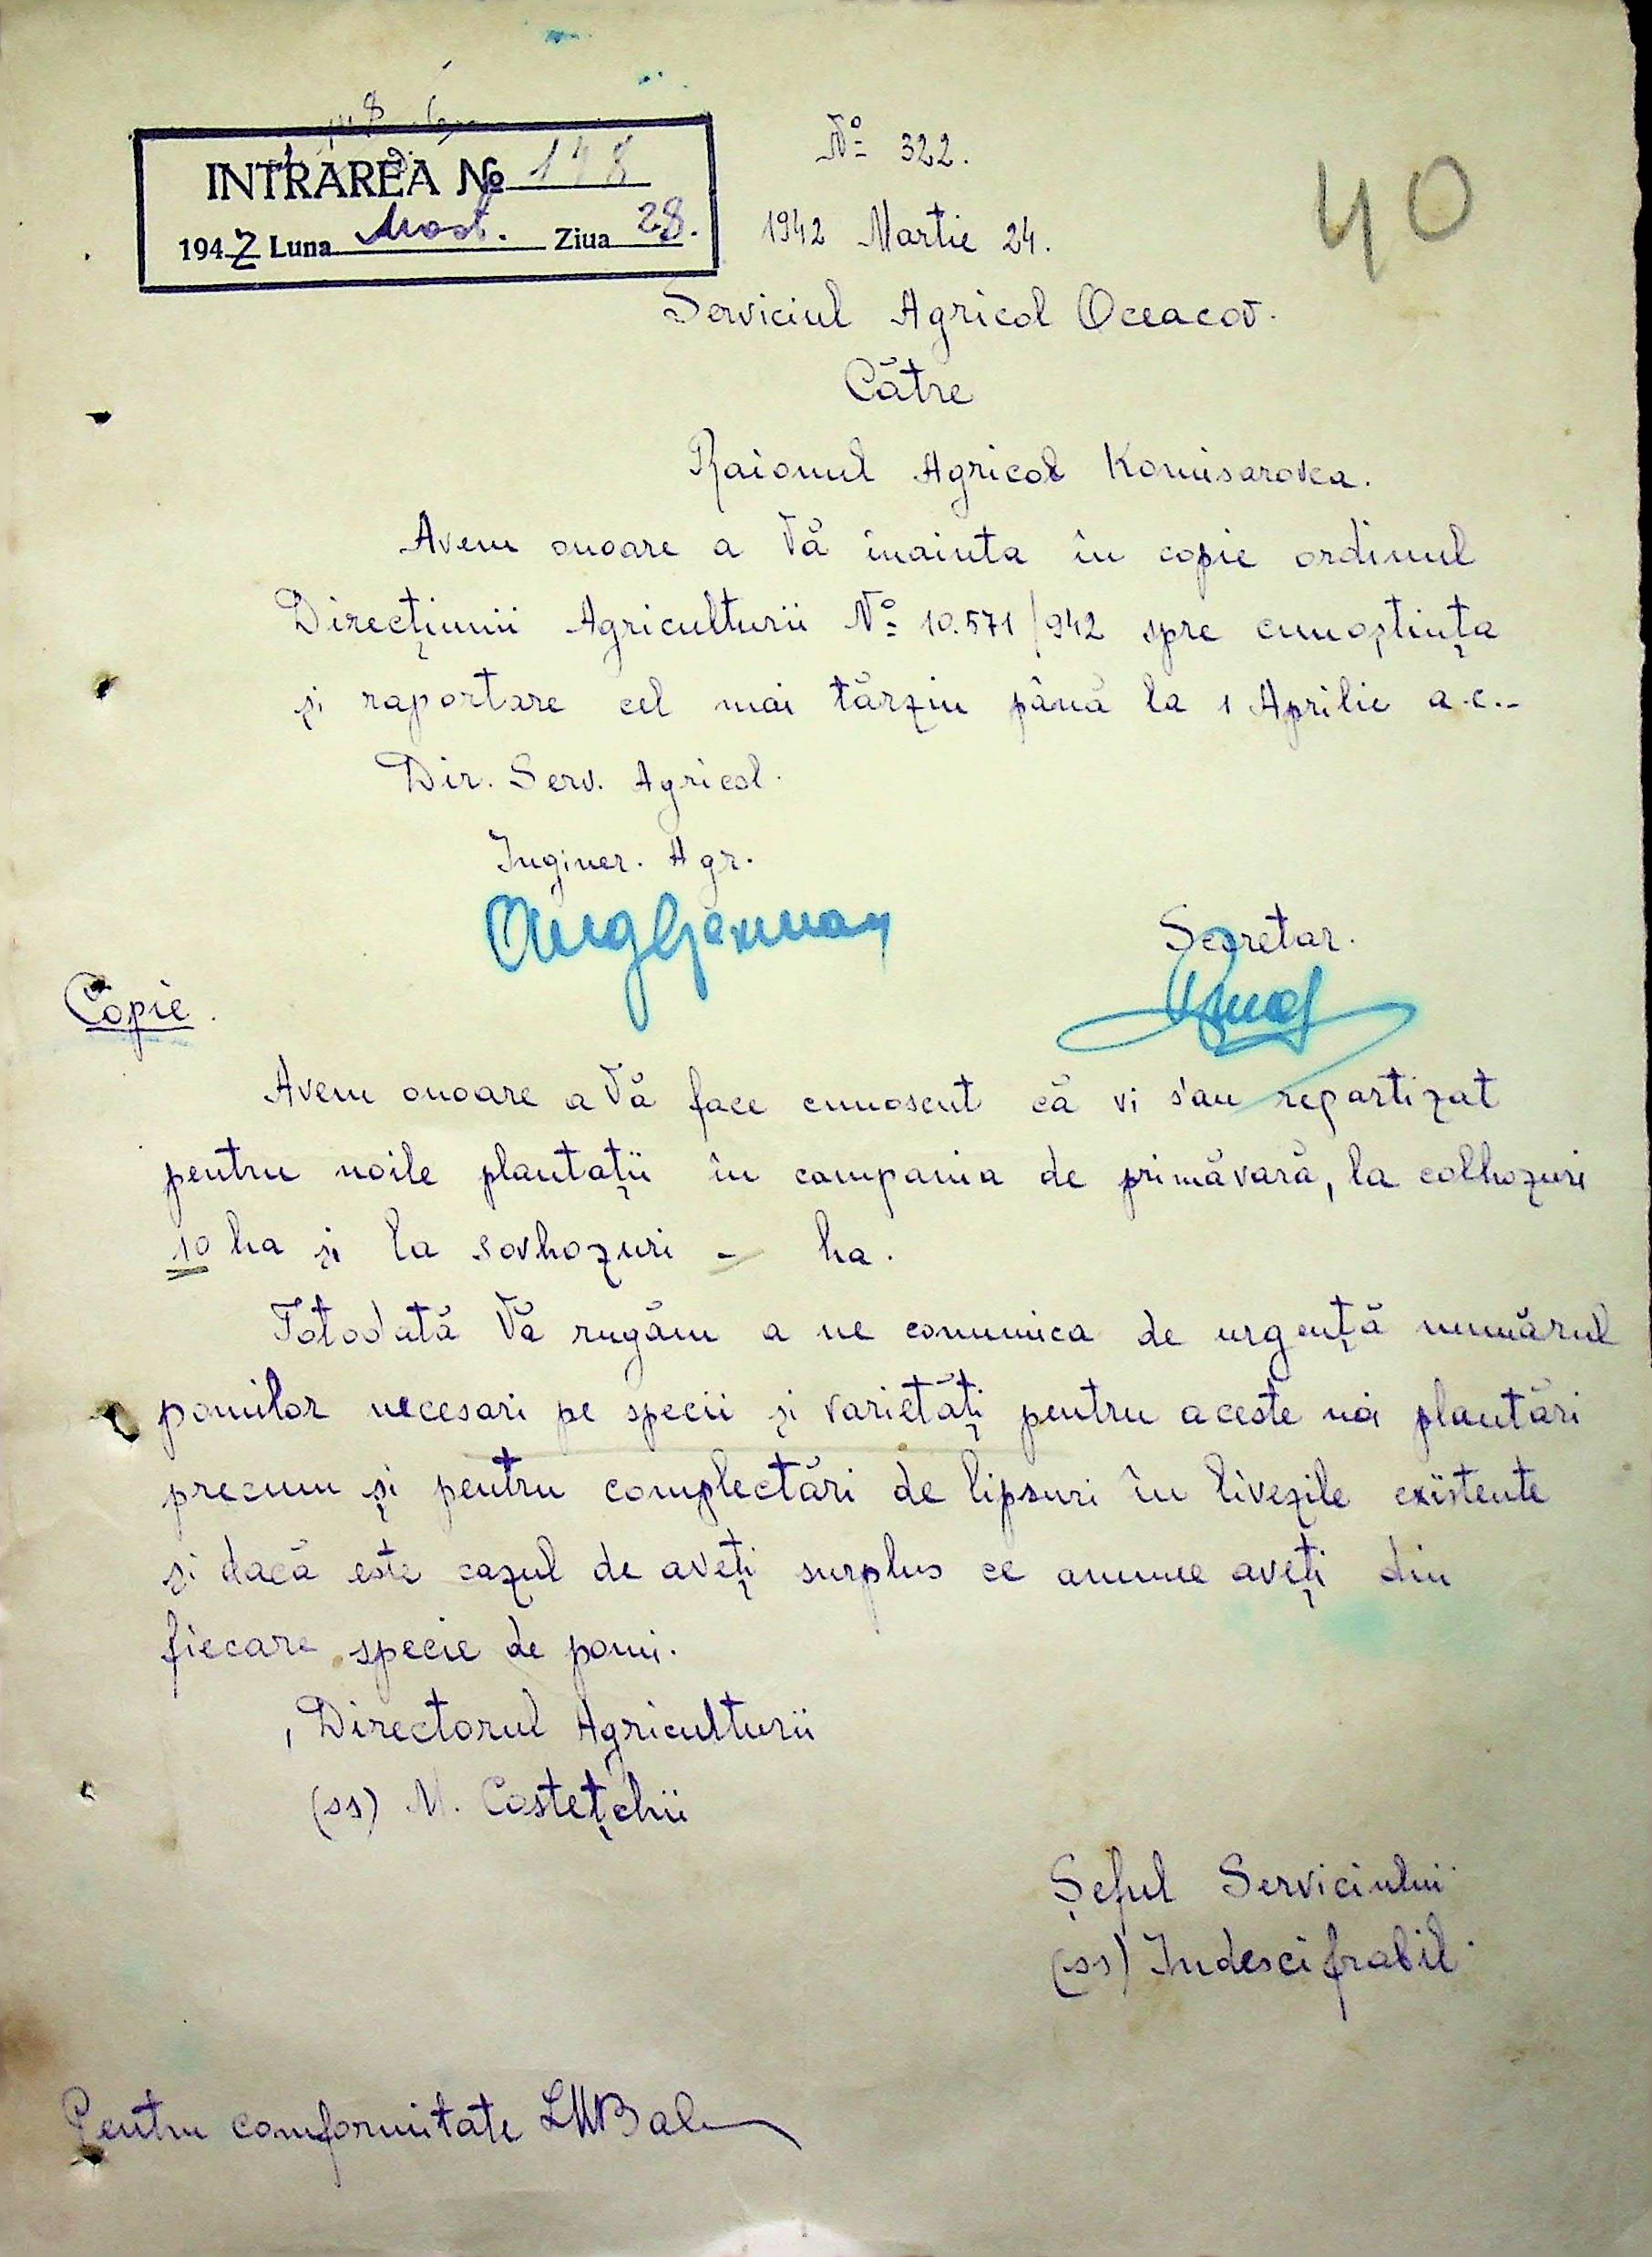 INTRAREA № 148
1942 Luna Mart. Ziua 28.
40
Nº 322.
1942 Martie 24.
Serviciul Agricol Oceacov.
Către
Raionul Agricol Komisarovca.
Avem onoare a Vă înainta în copie ordinul
Direcţiunii Agriculturii Nº 10.571/942 spre cunoştinţa
şi raportare cel mai tărziu până la 1 Aprilie a.c.-
Dir. Serv. Agricol.
Inginer. Agr.
Secretar.
Copie.
Avem onoare a Vă face cunoscut că vi s'au repartizat
pentru noile plantaţii în campania de primăvară, la colhozuri
10 ha şi la sovhozuri - ha.
Totodată Vă rugăm a ne comunica de urgenţă numărul
pomilor necesari pe specii şi varietăţi pentru aceste noi plantări
precum şi pentru complectări de lipsuri în livezile existente
şi dacă este cazul de aveţi surplus ce anume aveţi din
fiecare specie de pomi.
Directorul Agriculturii
(ss) M. Costeţchii
Şeful Serviciului
(ss) Indescifrabil.
Pentru comformitate